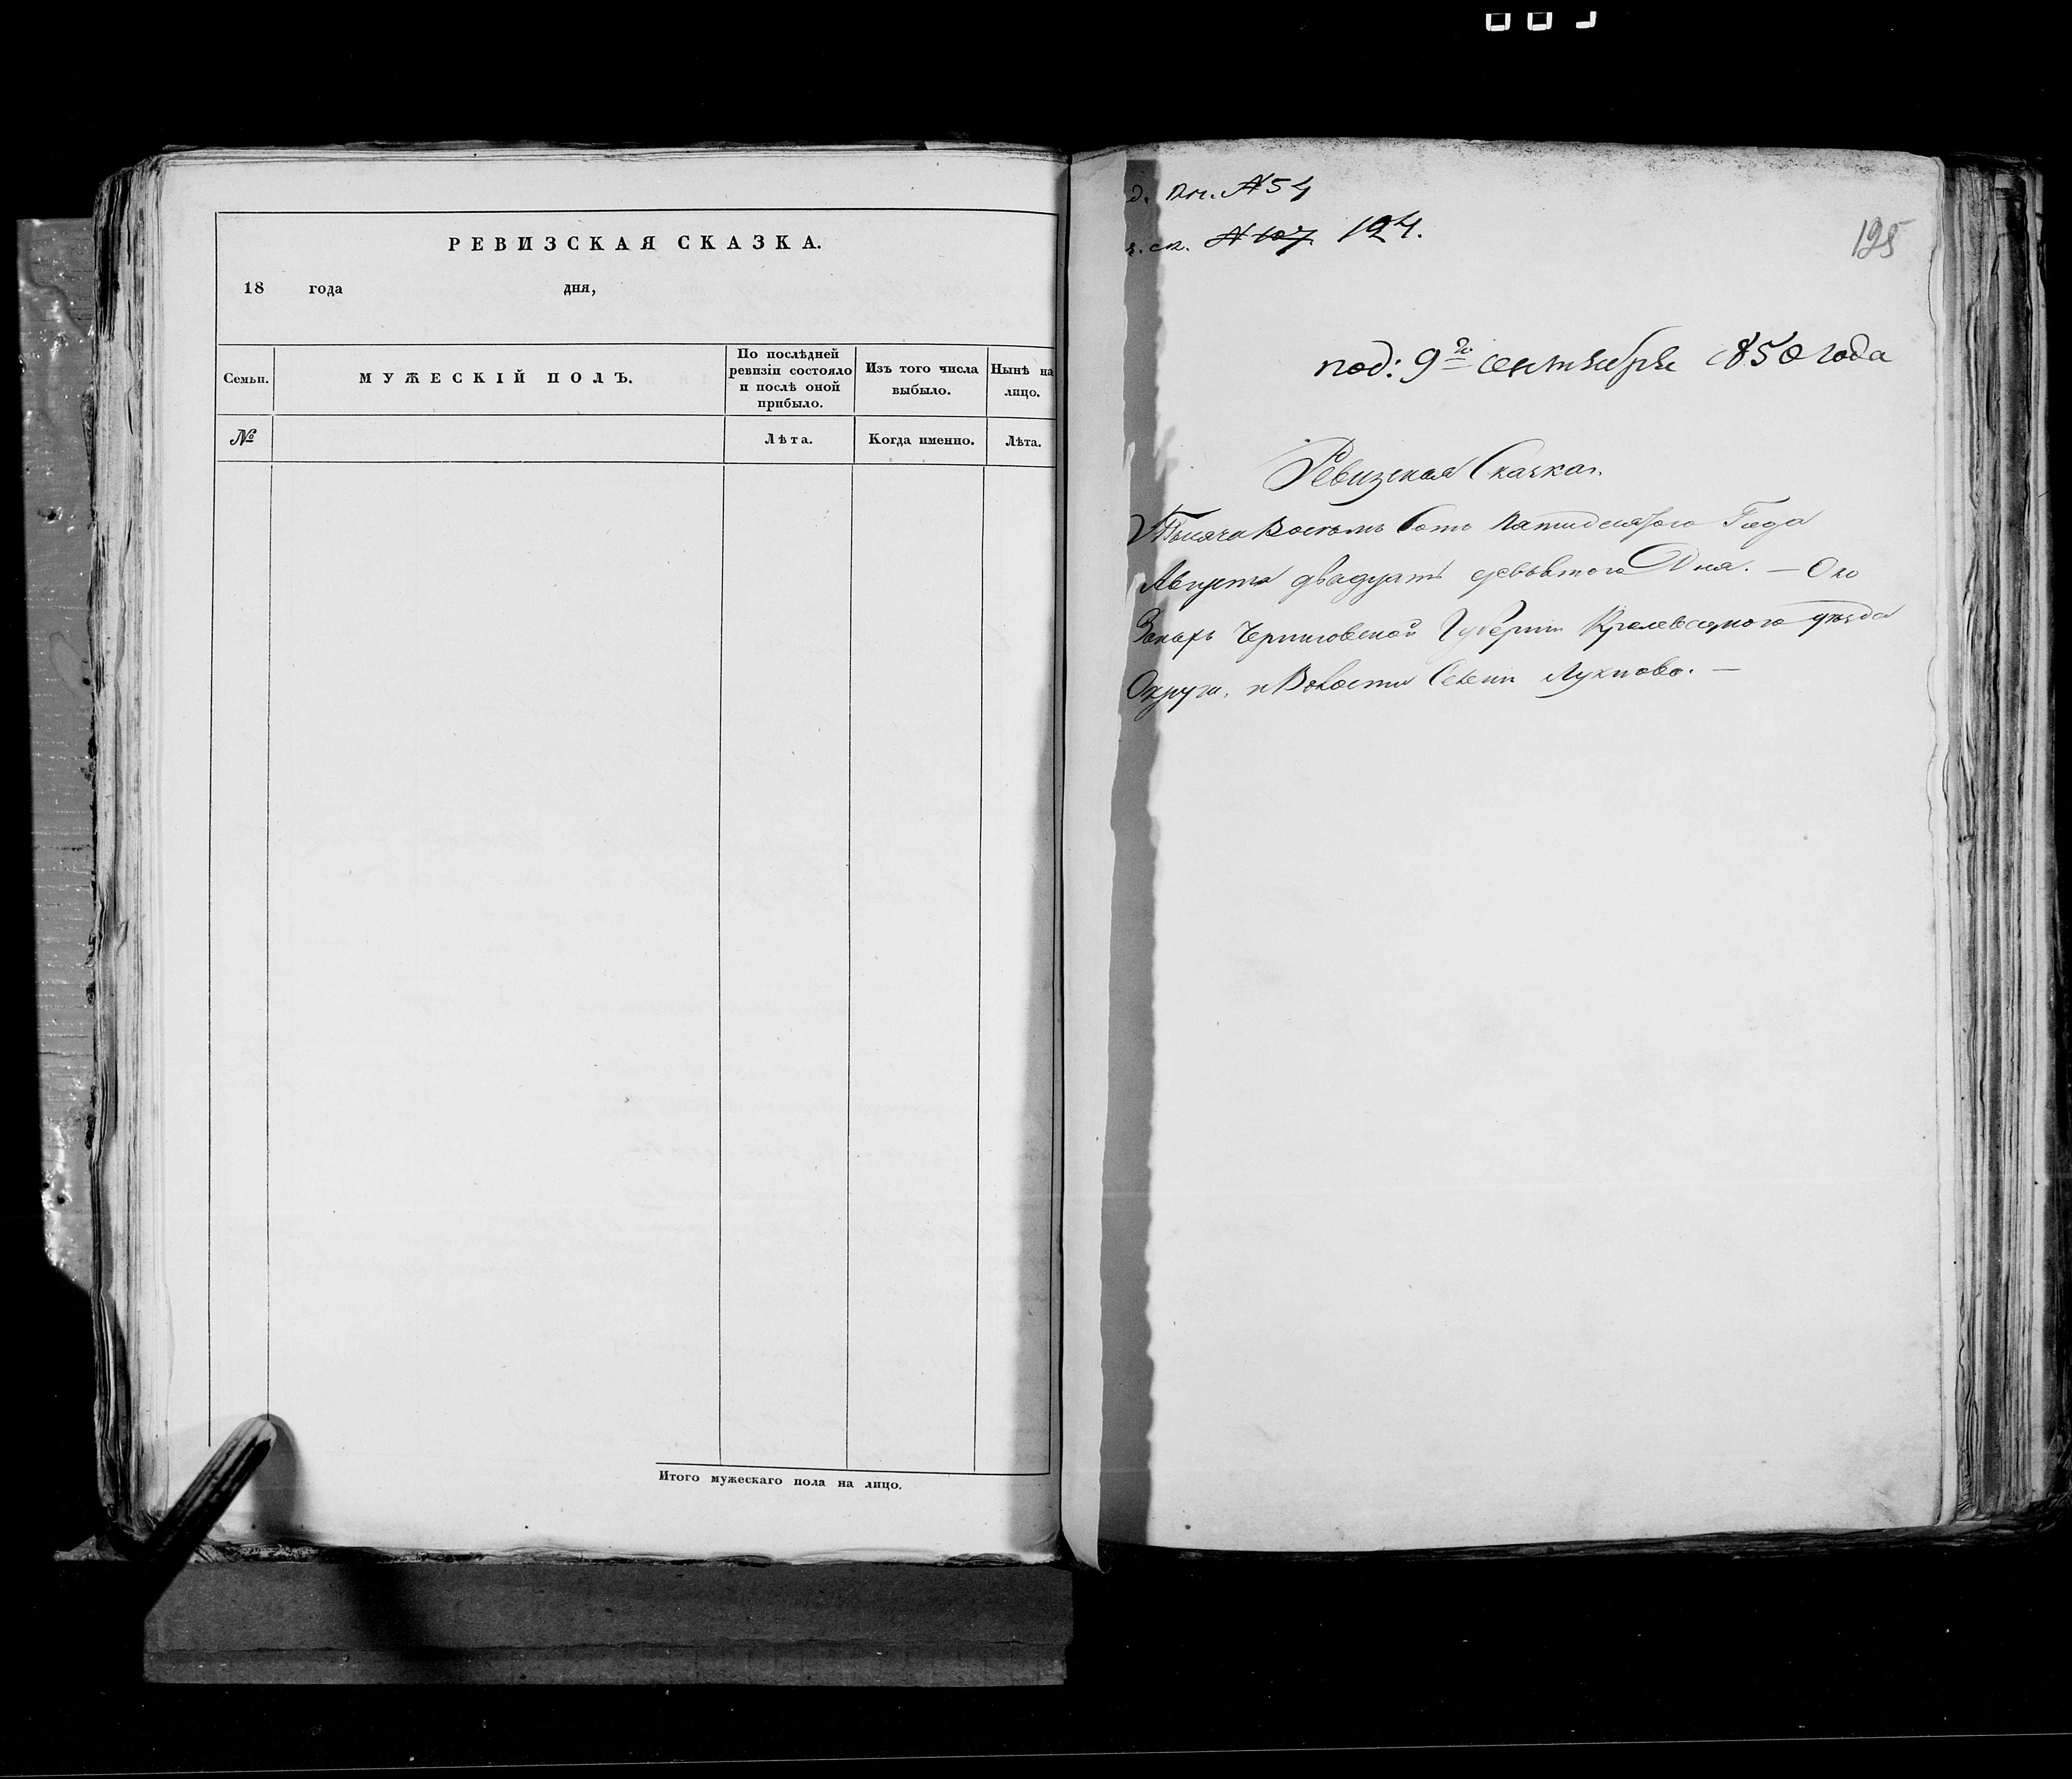 РЕВИЗСКАЯ СКАЗКА.
18 года дня,
Семьи.
МУЖЕСКІЙ ПОЛЪ.
По послѣдней
ревизіи состояло
и послѣ оной
прибыло.
Изъ того числа
выбыло.
Нынѣ на
лицо.
№
Лѣта.
Когда именно.
Лѣта.
Итого мужескаго пола на лицо.
№54
№ 107 124.
125
под: 9го сентября 1850 года
Ревизская Сказка
Тысяча Восемь Сотъ Пятидесятого Года
Августа двадцать девьятого Дня. —
Черниговской Губерніи Кролевецкого уѣзда
Округи, и Волости